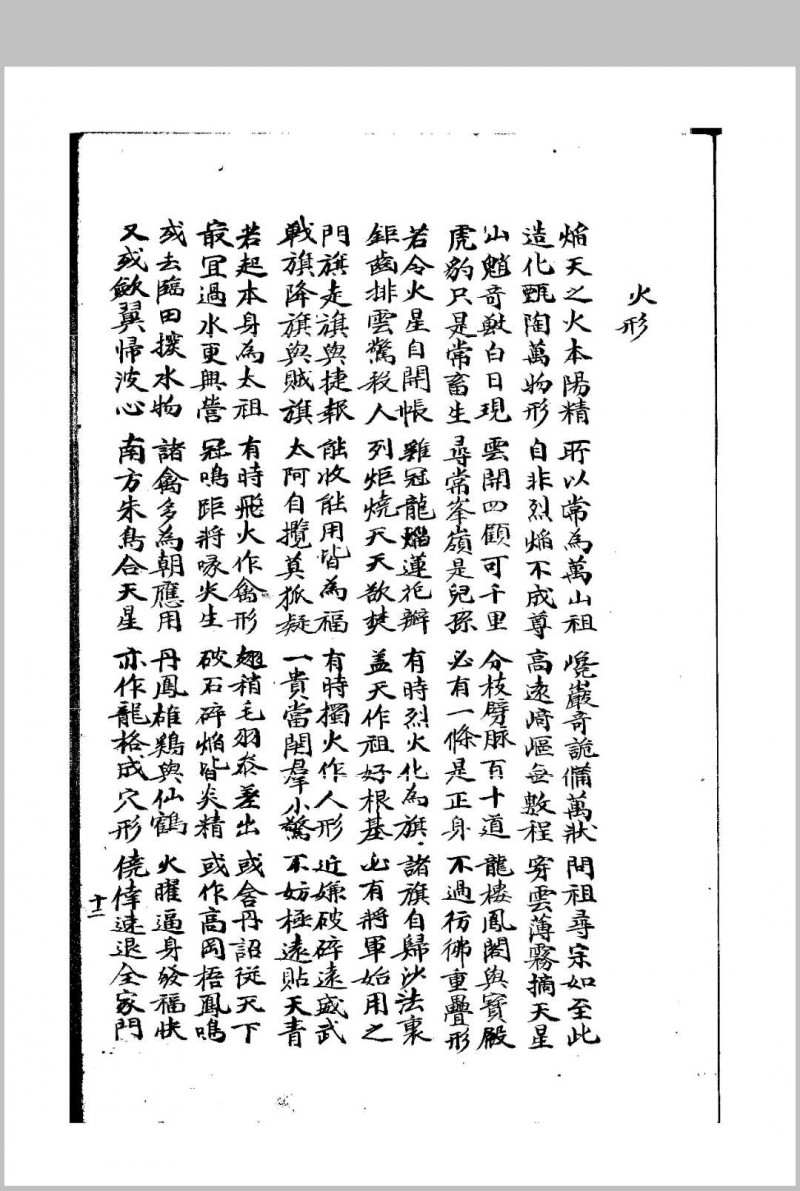 火形
焰天之火本陽精 所以常為萬山祖 巉巖奇詭備萬狀 問祖尋宗如至此
造化甄陶萬物形 自非烈焰不成尊 高遠崎嶇無數程 穿雲薄霧摘天星
山魈奇獸白日現 雲開四顧可千里 分枝劈脉百十道 龍樓鳳閣與寶殿
虎豹只是常畜生 尋常峯嶺是兒孫 必有一條是正身 不過彷彿重疊形
若令火星自開帳 雞冠龍焰蓮花瓣 有時烈火化為旗 諸旗自歸沙法裏
鉅齒排雲驚殺人 列炬燒天天欲焚 盖天作祖好根基 必有將軍始用之
門旗走旗與捷報 能收能用皆為福 有時獨火作人形 近嫌破碎遠威武
戰旗降旗與賊旗 太阿自攬莫狐疑 一貴當開羣小驚 不妨極遠貼天青
若起本身為太祖 有時飛火作禽形 翅稍毛羽參差出 或含丹詔從天下
最宜過水更興營 冠鳴距將啄尖生 破石碎焰皆炎精 或作高岡梧鳳鳴
或去臨田撥水物 諸禽多為朝應用 丹鳳雄鷄與仙鶴 火曜逼身發福快
又或斂翼歸波心 南方朱鳥合天星 亦作龍格成穴形 僥倖速退全家門
十二